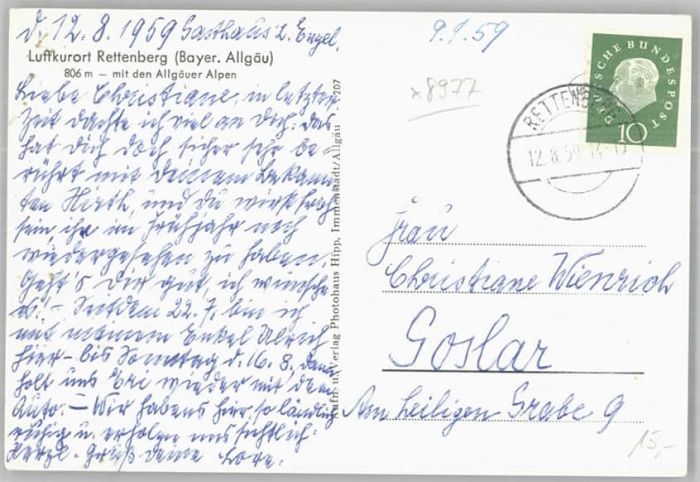 d. 12.8.1959 Gasthaus z. Engel.
Luftkurort Rettenberg (Bayer. Allgäu)
806 m — mit den Allgäuer Alpen
Liebe Christiane, in letzter
Zeit dachte ich viel an Dich: das
hat Dich doch sicher sehr be-
rührt mit Deinem Bekann-
ten und Du wirst froh
sein, ihn im Frühjahr noch
wiedergesehen zu haben.
Geht's Dir gut, ich wünsche
es! – Seit dem 22.7. bin ich
mit meinem Enkel Ulrich
hier – bis Sonntag d. 16.8. dann
holt uns Eri wieder mit dem
Auto. – Wir habens hier so ländlich
ruhig u. erholen uns sichtlich.
Herzl. Gruß Deine Lore.
Aufn. u. Verlag Photohaus Hipp, Immenstadt/Allgäu
207
9.9.59
x8977
DEUTSCHE BUNDESPOST
10
RETTENBERG
12.8.59
Frau
Christiane Wienrich
Goslar
Am heiligen Grabe 9
15,-